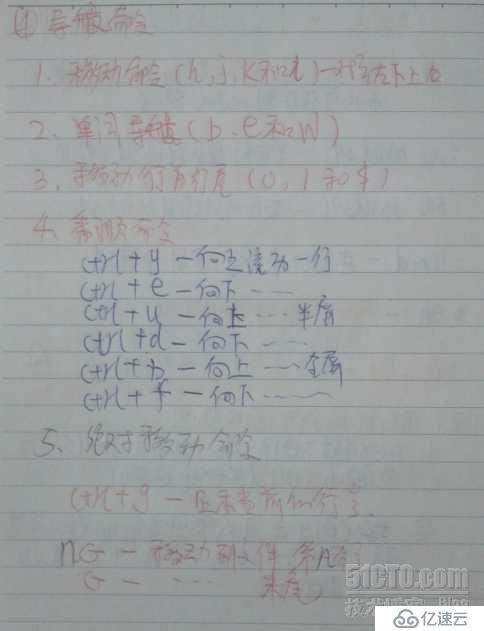 (1) 导航命令
1. 移动命令(h, j, k和l)—对应左下上右
2、单词导航(b、e和w)
3、移动行首行尾(0, | 和$)
4、翻页命令
ctrl + y — 向上滚动一行
ctrl + e — 向下 ……
ctrl + u — 向上 … 半屏
ctrl + d — 向下 ……
ctrl + b — 向上 …… 全屏
ctrl + f — 向下 ……
5、绝对移动命令
ctrl + g — 显示当前的行号
nG — 移动到文件 第n行
G — … 末尾
51CTO.com
技术博客 Blog
亿速云